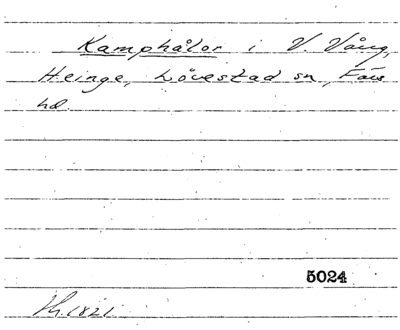 Kamphålor i V. Vång,
Heinge, Lövestad sn, Färs
hd.
5024
Hg. 1821.